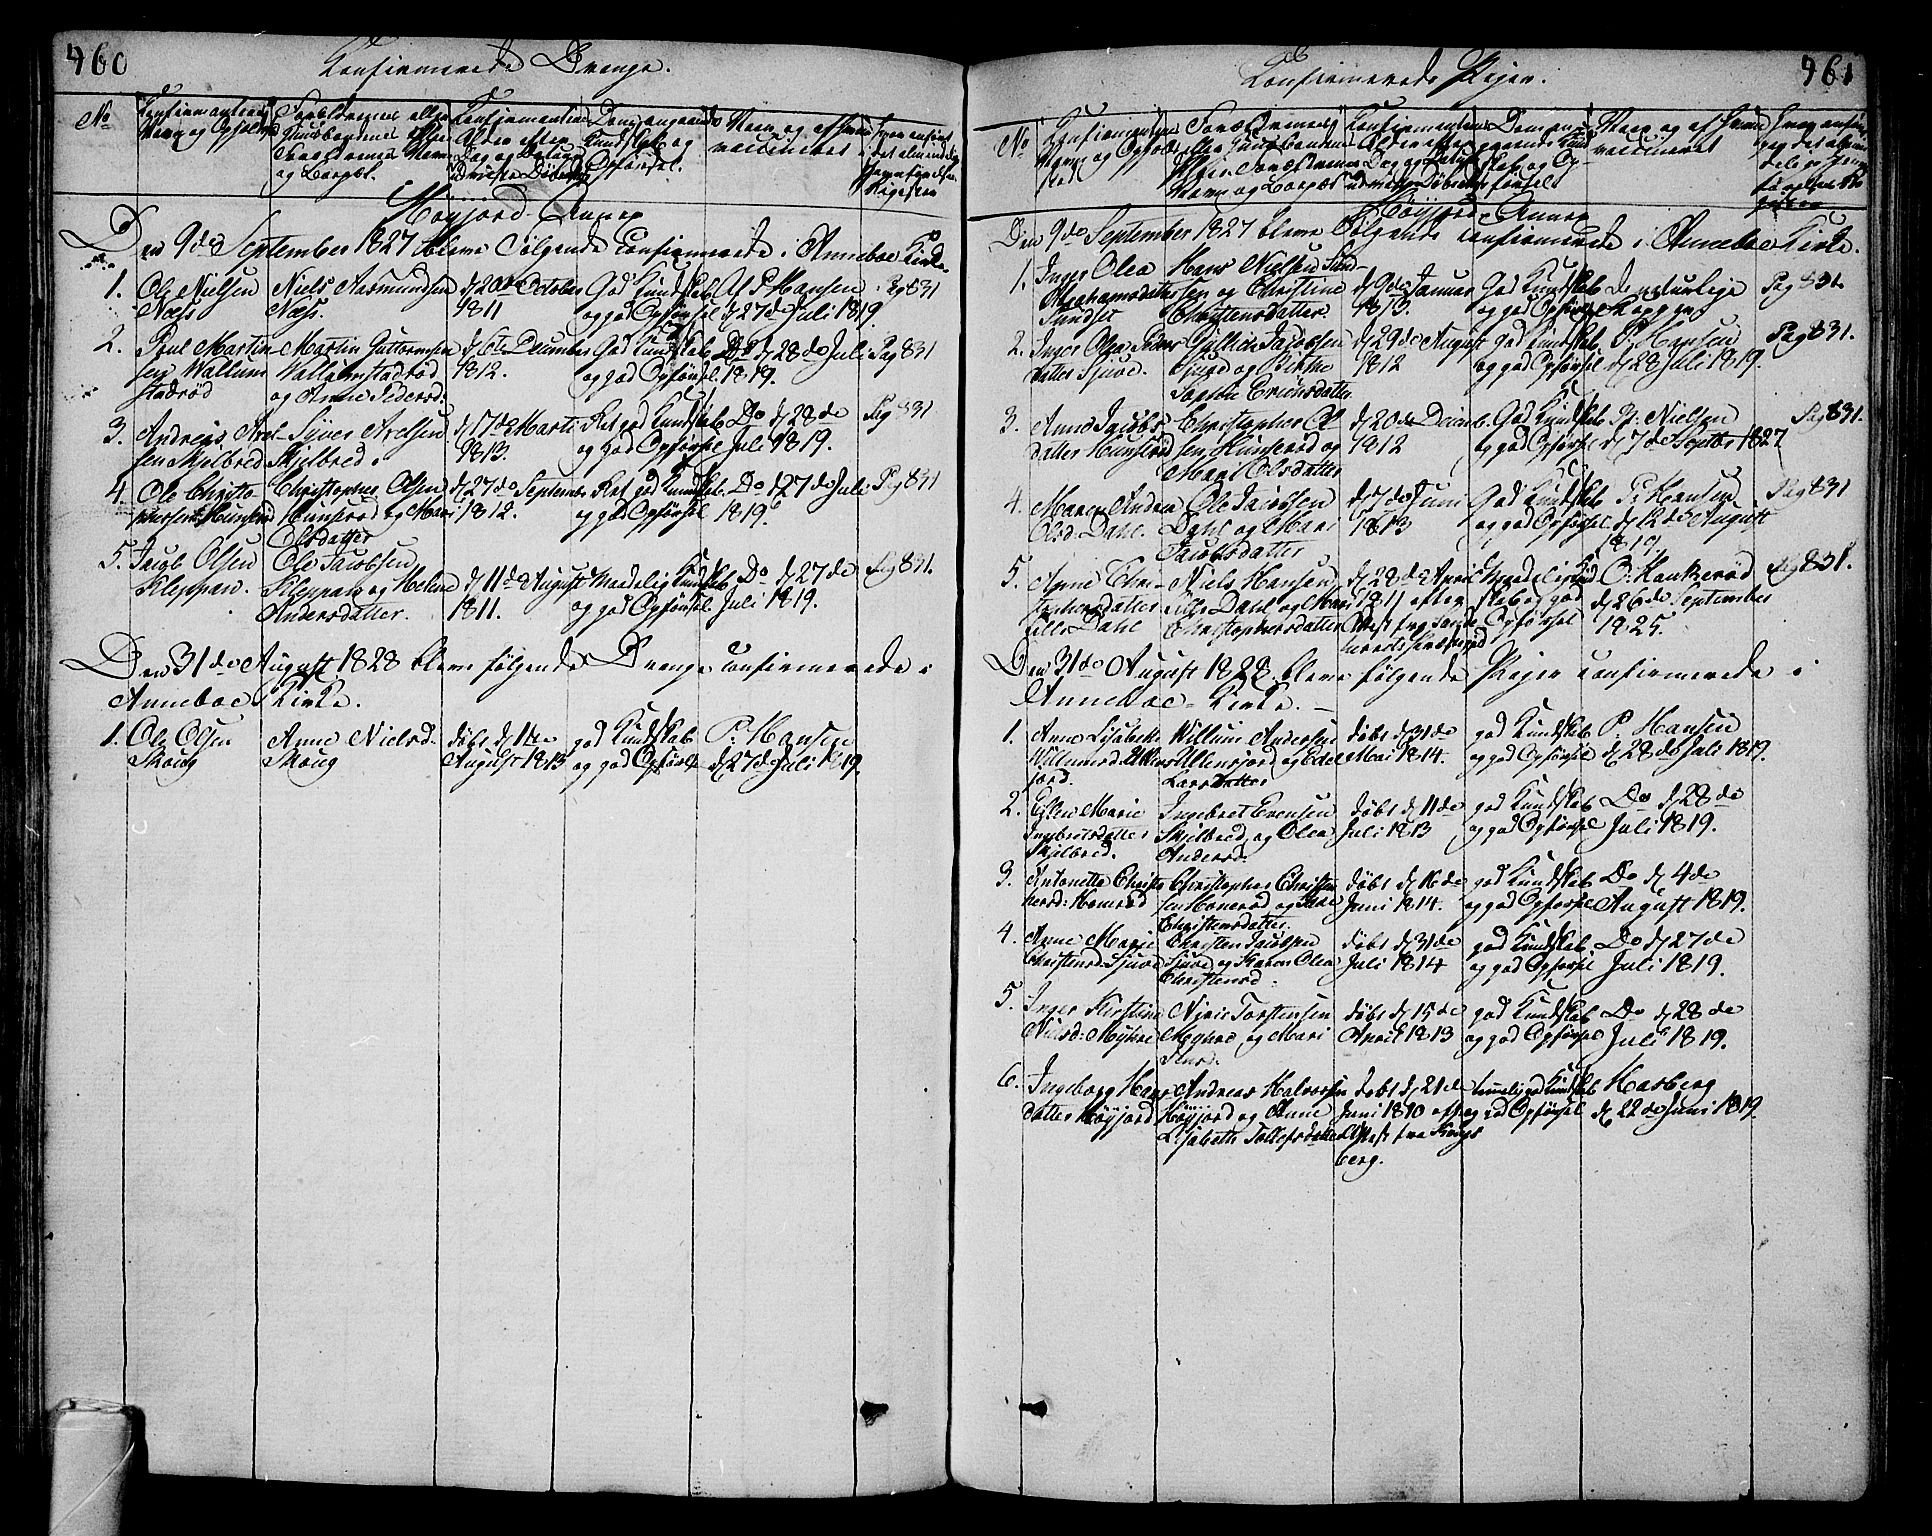 460
Confirmerede Drenge.
No
Confirmantens Navn og Opholds
Forældrenes eller Huusbondens eller Forældrenes Navn og Bopæl.
Confirmantens Alder efter Dag og Datum
Dom angaaende Kundskab og Opførsel.
Naar og af hvem vaccineret
Hvor anført i det almindelige Jevnførelses Register
Høyjord Annex
Den 9de September 1827 bleve Følgende Confirmerede i Anneboe Kirke.
1. Ole Nielsen Næss
Niels Aasmundsen Næss.
d 20de October 1811
God Kundskab og god Opførsel
Af P Hansen d 27de Juli 1819.
Pag 831
2. Poul Martinsen Wallumstadrød
Martin Guttormsen Wallumstadrød og Anne Pedersd.
d 6te December 1812.
God Kundskab og god Opførsel.
Do d 28de Juli 1819.
Pag 831
3. Andreas Axelsen Skjelbred
Syver Axelsen Skjelbred.
d 17de Marti 1813.
Ret god Kundskab og god Opførsel
Do d 28de Juli 1819.
Pag 831
4. Ole Christophersen Hunsrød
Christopher Olsen Hunsrød og Mari Olsdatter
d 27de September 1812.
Ret god Kundskab og god Opførsel
Do d 27de Juli 1819.
Pag 831
5. Jacob Olsen Kleppan.
Ole Jacobsen Kleppan og Helene Andersdatter.
d 11de August 1811.
Maadelig Kundskab og god Opførsel
Do d 27de Juli 1819.
Pag 831.
Den 31de August 1828 bleve følgende Drenge Confirmerede i
Anneboe Kirke.
1. Ole Olsen Skoug
Anne Nielsd. Skoug
døbt d 14de August 1813
god Kundskab og god Opførsel
P. Hansen d 27de Juli 1819.
461
Confirmerede Piger.
No
Confirmantens Navn og Opholdssted
Forældrenes eller Huusbondens eller Forældrenes Navn og Bopæl
Confirmantens Alder efter Dag og Datum
Dom angaaende Kundskab og Opførsel
Naar og af hvem vaccineret
Hvor anført i det almindelige Jevnførelses Register
Høyjord Annex
Den 9de September 1827 bleve Følgende Confirmerede i Anneboe Kirke.
1. Inger Olea Abrahamsdatter Sundset
Hans Nielsen Sundsen og Christine Christensdatter.
d 9de Januar 1813.
God Kundskab og god Opførsel
De naturlige Kopper
Pag 831.
2. Inger Olea datter Sjuve.
Gullich Jacobsen Sjuve og Birthe Sophie Erichsdatter
d 29de August 1812
God Kundskab og god Opførsel
P. Hansen d 28 Juli 1819.
Pag 831.
3. Anne Jacobsdatter Hunsrød
Christopher Olsen Hunsrød og Mari Olsdatter
d 20de Decemb. 1812
God Kundskab og god Opførsel
P. Nielsen d 7de Septbr 1827
Pag 831.
4. Maren Andrea Olsd. Dahl.
Ole Jacobsen Dahl og Mari Jacobsdatter
d 7de Juni 1813
God Kundskab og god Opførsel
P. Hansen d 12de August 1819
Pag 831
5. Anne Christophersdatter Dahl
Niels Hansen Dahl og Mari Christophersdatter
d 28de April 1811 efter Attest fra Sande
Maadelig Kundskab og god Opførsel
O. Haukerød d 26de September 1825.
Pag 831.
Den 31de August 1828. bleve følgende Piger confirmerede i
Anneboe Kirke.
1. Anne Lisabeth Willumsd Ullensjord.
Willum Andersen Ullensjord og Edel Larsdatter
døbt d 31de Mai 1814.
god Kundskab og god Opførsel
P. Hansen d 28de Juli 1819.
2. Ellen Marie Ingbretsdatter Skjelbred.
Ingebret Evensen Skjelbred og Olea Andersd.
døbt d 11de Juli 1813
god Kundskab og god Opførsel
Do d 28de Juli 1819.
3. Antonette Christophersd: Honerød
Christopher Christensen Honerød og Christensdatter.
døbt d 16de Juni 1814.
god Kundskab og god Opførsel
Do d 4de August 1819.
4. Anne Marie Christensd Sjuve
Christen Jacobsen Sjuve og Karen Olea Christensd:
døbt d 31de Juli 1814
god Kundskab og god Opførsel
Do d 27de Juli 1819.
5. Inger Kirstine Nielsd: Myhre
Niels Torstensen Myhre og Mari
døbt d 15de April 1813
god Kundskab og god Opførsel
Do d 28de Juli 1819.
6. Ingeborg Hansdatter Høyjord
Andreas Halvorsen Høyjord og Anne Lisabeth Tollefsdatter
døbt d 21de Juni 1810 eft Attest fra Kongsberg.
temelig god Kundskab og god Opførsel
Harberg d 22de Juni 1819